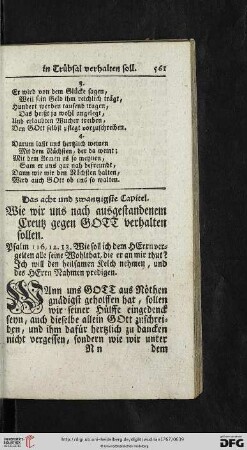 in Trübsal verhalten soll. 561
3.
Er wird von dem Glücke sagen,
Weil sein Geld ihm reichlich trägt,
Hundert werden tausend tragen,
Das heißt ja wohl angelegt,
Und erlaubten Wucher treiben,
Den GOtt selbst pflegt vorzuschreiben.
4.
Darum laßt uns hertzlich weinen
Mit dem Nächsten, der da weint;
Mit dem Armen es so meynen,
Sam er uns gar nah befreundt,
Dann wie wir den Nächsten halten,
Wird auch GOtt ob uns so walten.
Das acht und zwantzigste Capitel.
Wie wir uns nach ausgestandenem
Creutz gegen GOTT verhalten
sollen.
Psalm 116, 12. 13. Wie soll ich dem HErrn ver-
gelten alle seine Wohlthat, die er an mir thut?
Ich will den heilsamen Kelch nehmen, und
des HErrn Nahmen predigen.
WAnn uns GOTT aus Nöthen
gnädigst geholffen hat, sollen
wir seiner Hülffe eingedenck
seyn, auch dieselbe allein GOtt zuschrei-
ben, und ihm dafür hertzlich zu dancken
nicht vergessen, sondern wie wir unter
N n dem
© Universitätsbibliothek Heidelberg
DFG